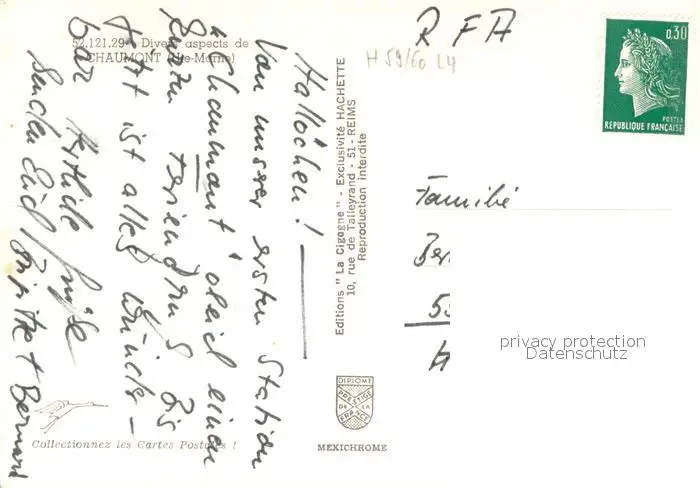 52.121.29 - Divers aspects de
CHAUMONT (Hte-Marne)
Hallöchen!
Von unser ersten Station
"Chaumont" gleich einen
kurzen Feriengruß. Bis
jetzt ist alles wunder-
bar. Herzliche Grüße
senden Euch Brigitte + Bernard
Collectionnez les Cartes Postales !
Editions "La Cigogne" - Exclusivité HACHETTE
10, rue de Talleyrand - 51 - REIMS
Reproduction interdite
DIPLOME
PRESTIGE
DE LA
FRANCE
MEXICHROME
RFA
H 59/60 L4
0,30
POSTES
REPUBLIQUE FRANÇAISE
Familie
privacy protection
Datenschutz